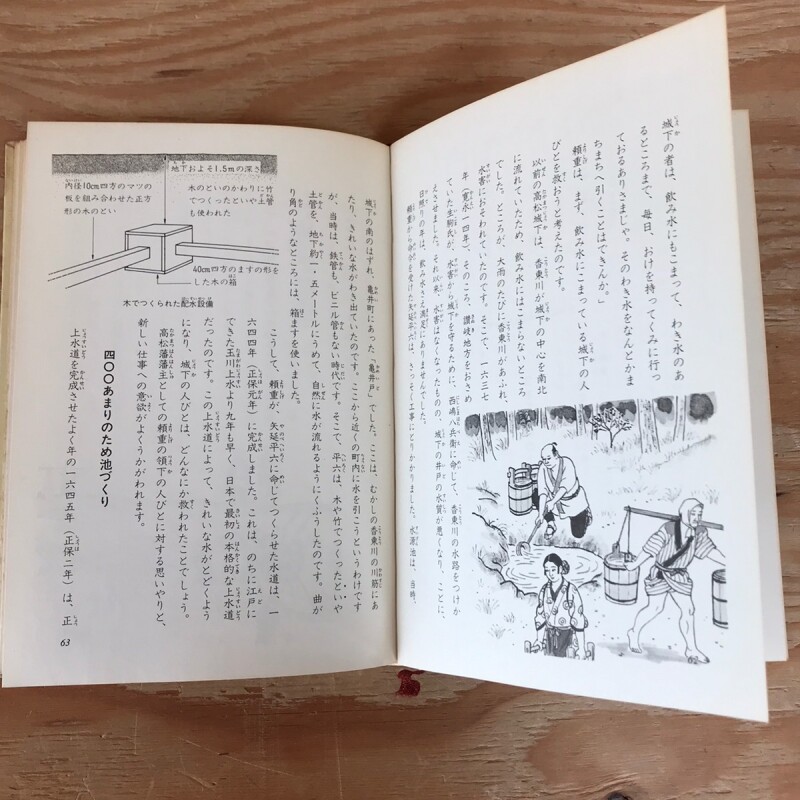 城下の者は、飲み水にもこまって、わき水のあ
るところまで、毎日、おけを持ってくみに行っ
ておるありさまじゃ。そのわき水をなんとかま
ちまへ引くことはできんか。」
頼重は、まず、飲み水にこまっている城下の人
びとを救おうと考えたのです。
以前の高松城下は、香東川が城下の中心を南北
に流れていたため、飲み水にはこまらないところ
でした。ところが、大雨のたびに香東川があふれ、
水害におそわれていたのです。そこで、一六三七
年（寛永一四年）、そのころ、讃岐地方をおさめ
ていた生駒氏が、水害から城下を守るために、西嶋八兵衛に命じて、香東川の水路をつけか
えさせました。それ以来、水害はなくなったものの、城下の井戸の水質が悪くなり、ことに、
日照りの年は、飲み水さえ満足にありませんでした。
頼重から命令を受けた矢延平六は、さっそく工事にとりかかりました。水源池は、当時、
城下の南のはずれ、亀井町にあった「亀井戸」でした。ここは、むかしの香東川の川筋にあ
たり、きれいな水がわき出ていたのです。ここから近くの町内に水を引こうというわけです
が、当時は、鉄管も、ビニル管もない時代です。そこで、平六は、木や竹でつくったといや
土管を、地下約一・五メートルにうめて、自然に水が流れるようにくふうしたのです。曲が
り角のようなところには、箱ますを使いました。
こうして、頼重が、矢延平六に命じてつくらせた水道は、一
六四四年（正保元年）に完成しました。これは、のちに江戸に
できた玉川上水より九年も早く、日本で最初の本格的な上水道
だったのです。この上水道によって、きれいな水がとどくよう
になり、城下の人びとは、どんなにか救われたことでしょう。
高松藩藩主としての頼重の領下の人びとに対する思いやりと、
新しい仕事への意欲がよくうかがわれます。
四〇〇あまりのため池づくり
上水道を完成させたよく年の一六四五年（正保二年）は、正
地下およそ1.5mの深さ
内径10cm四方のマツの
板を組み合わせた正方
形の木のとい
木のといのかわりに竹
でつくったといや土管
も使われた
40cm四方のますの形を
した木の箱
木でつくられた配水設備
63